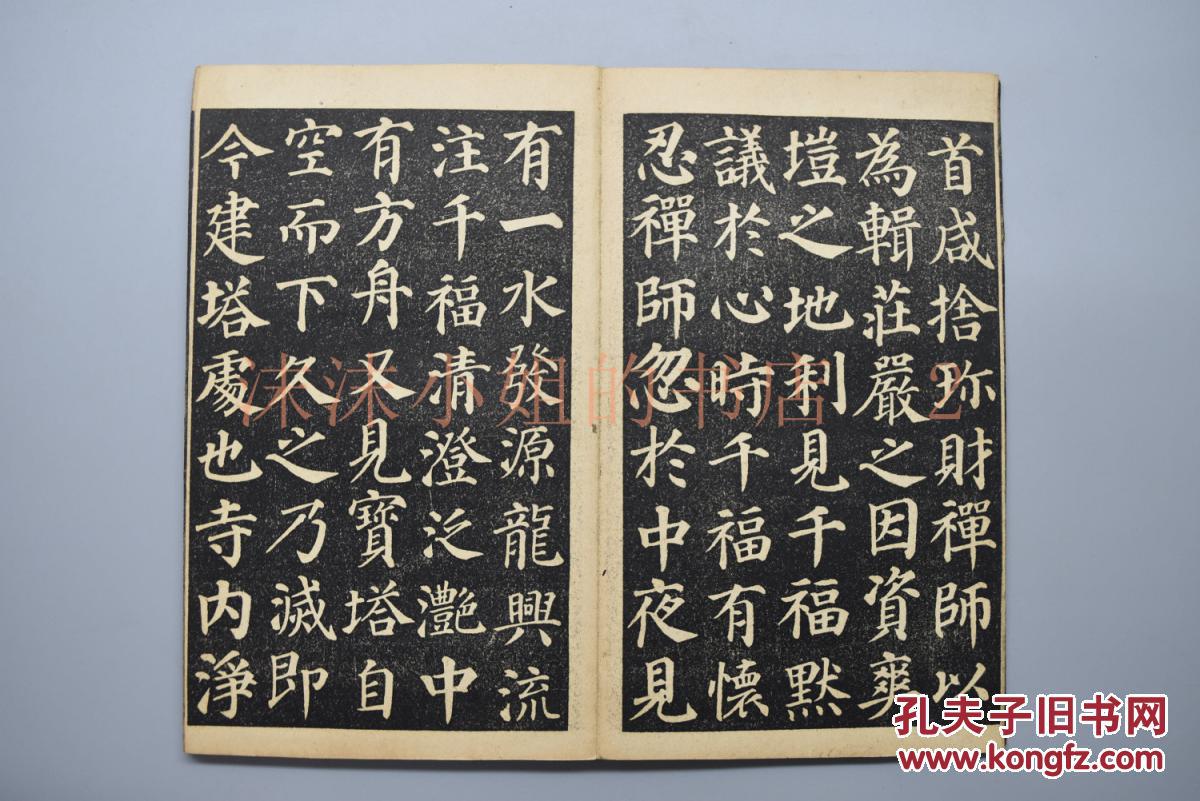 首咸捨珎財禪師以
為輯莊嚴之因資爽
塏之地利見千福默
議於心時千福有懷
忍禪師忽於中夜見
有一水發源龍興流
注千福清澄泛灩中
有方舟又見寶塔自
空而下久之乃滅即
今建塔處也寺内淨
沐沐小姐的书店 2
孔夫子旧书网
www.kongfz.com